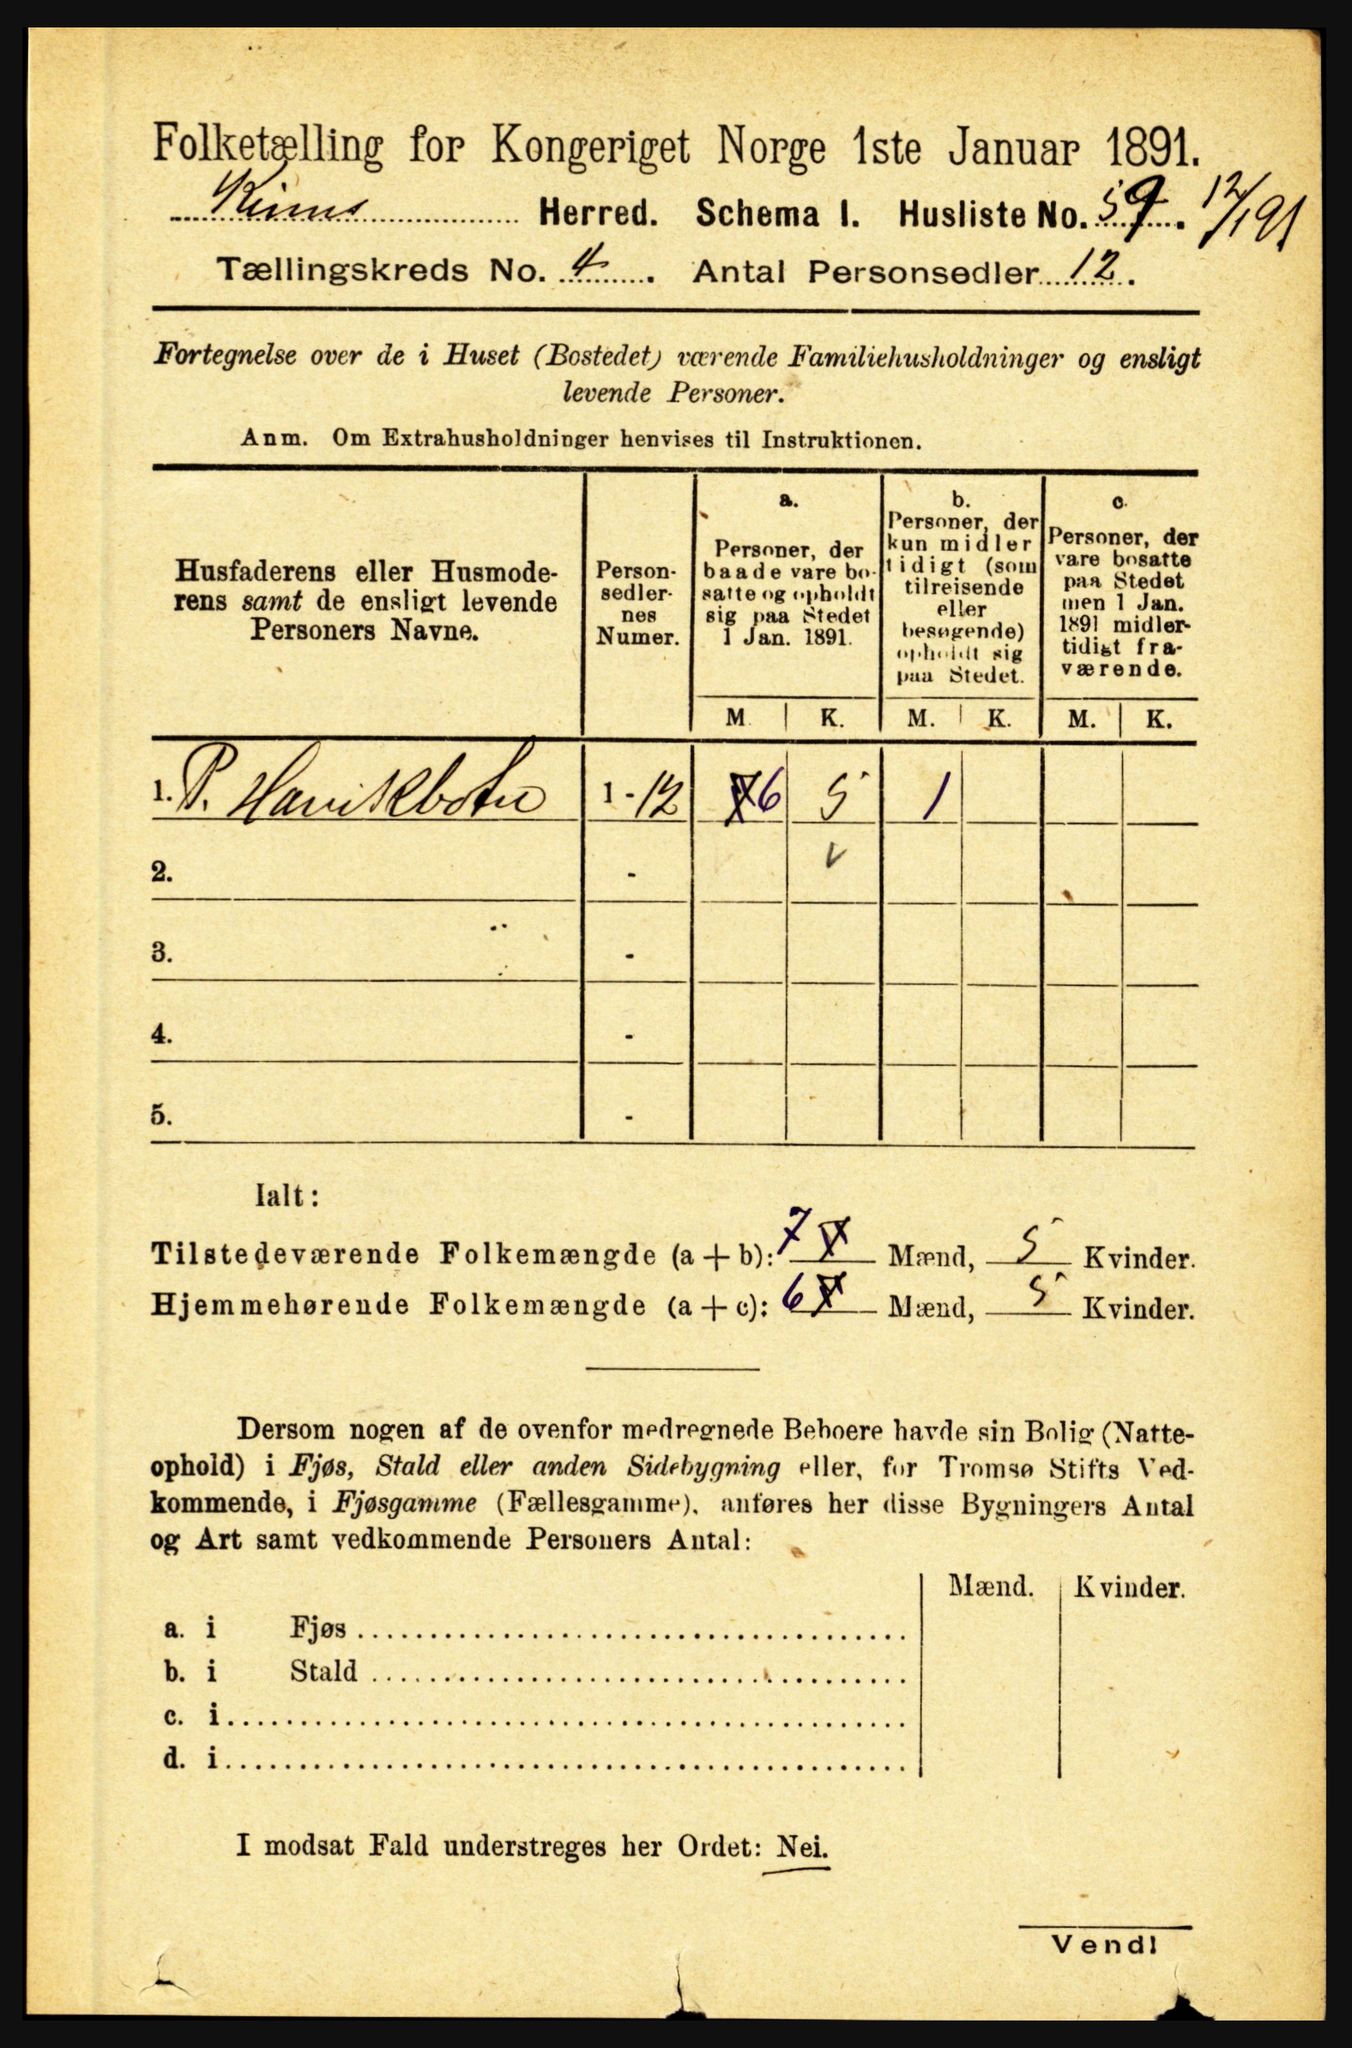 Folketælling for Kongeriget Norge 1ste Januar 1891.
Kinns Herred. Schema I. Husliste No. 59. 12/1 91
Tællingskreds No. 4. Antal Personsedler 12.
Fortegnelse over de i Huset (Bostedet) værende Familiehusholdninger og ensligt
levende Personer.
Anm. Om Extrahusholdninger henvises til Instruktionen.
Husfaderens eller Husmode-
rens samt de ensligt levende
Personers Navne.
Person-
sedler-
nes
Numer.
a.
Personer, der
baade vare bo-
satte og opholdt
sig paa Stedet
1 Jan. 1891.
b.
Personer, der
kun midler
tidigt (som
tilreisende
eller
besøgende)
opholdt sig
paa Stedet.
c.
Personer, der
vare bosatte
paa Stedet
men 1 Jan.
1891 midler-
tidigt fra-
værende.
M. K. M. K. M. K.
1. P. Havikbotn 1 - 12 7 6 5 1
2. -
3. -
4. -
5. -
Ialt:
Tilstedeværende Folkemængde (a + b): 7 Mænd, 5 Kvinder.
Hjemmehørende Folkemængde (a + c): 6 Mænd, 5 Kvinder.
Dersom nogen af de ovenfor medregnede Beboere havde sin Bolig (Natte-
ophold) i Fjøs, Stald eller anden Sidebygning eller, for Tromsø Stifts Ved-
kommende, i Fjøsgamme (Fællesgamme), anføres her disse Bygningers Antal
og Art samt vedkommende Personers Antal:
Mænd. Kvinder.
a. i Fjøs
b. i Stald
c. i
d. i
I modsat Fald understreges her Ordet: Nei.
Vend!